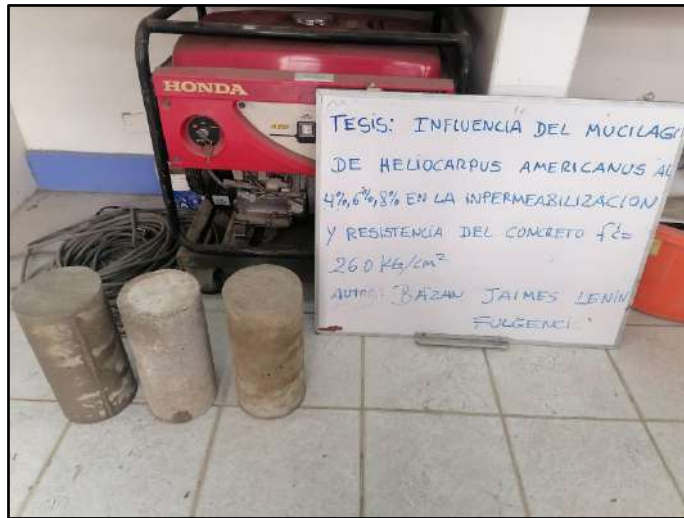 HONDA
TESIS: INFLUENCIA DEL MUCILAG
DE HELIOCARPUS AMERICANUS AL
4%,6%,8% EN LA INPERMEABILIZACION
Y RESISTENCIA DEL CONCRETO f'c=
260 KG/CM²
AUTOR: BAZAN JAIMES LENIN
FULGENCI